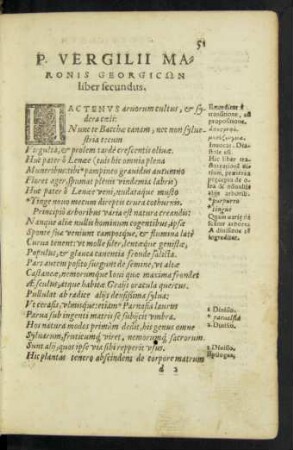 51
P. VERGILII MA-
RONIS GEORGICΩN
liber secundus.
HACTENVS aruorum cultus, & sy
dera cœli:
Nunc te Bacche canam, nec non syluestria tecum
Virgulta, & prolem tardè crescentis oliuæ.
Huc pater ô Lenæe (tuis hic omnia plena
Muneribus: tibi pampineo grauidus autumno
Floret ager, spumat plenis vindemia labris)
Huc pater ô Lenæe veni, nudataque musto
*Tinge nouo mecum direptis crura cothurnis.
Principio arboribus varia est natura creandis:
Nanque aliæ nullis hominum cogentibus, ipsæ
Sponte sua veniunt camposque, & flumina latè
Curua tenent: vt molle siler, lentæque genistæ,
Populus, & glauca canentia fronde salicta.
Pars autem posito surgunt de semine, vt altæ
Castaneæ, nemorumque Ioui quæ maxima frondet
Æsculus, atque habitæ Graijs oracula quercus.
Pullulat ab radice alijs densissima sylua:
Vt cerasis, vlmisque: etiam* Parnasia laurus
Parua sub ingenti matris se subijcit vmbra.
Hos natura modos primùm dedit, his genus omne
Syluarum, fruticumq; viret, nemorumq; sacrorum.
Sunt alij, quos ipse via sibi repperit vsus.
Hic plantas tenero abscindens de corpore matrum
d 3
Inuocat.
*purpura
tingit
1 Diuisio.
* parnassia
2 Diuisio.
3 Diuisio.